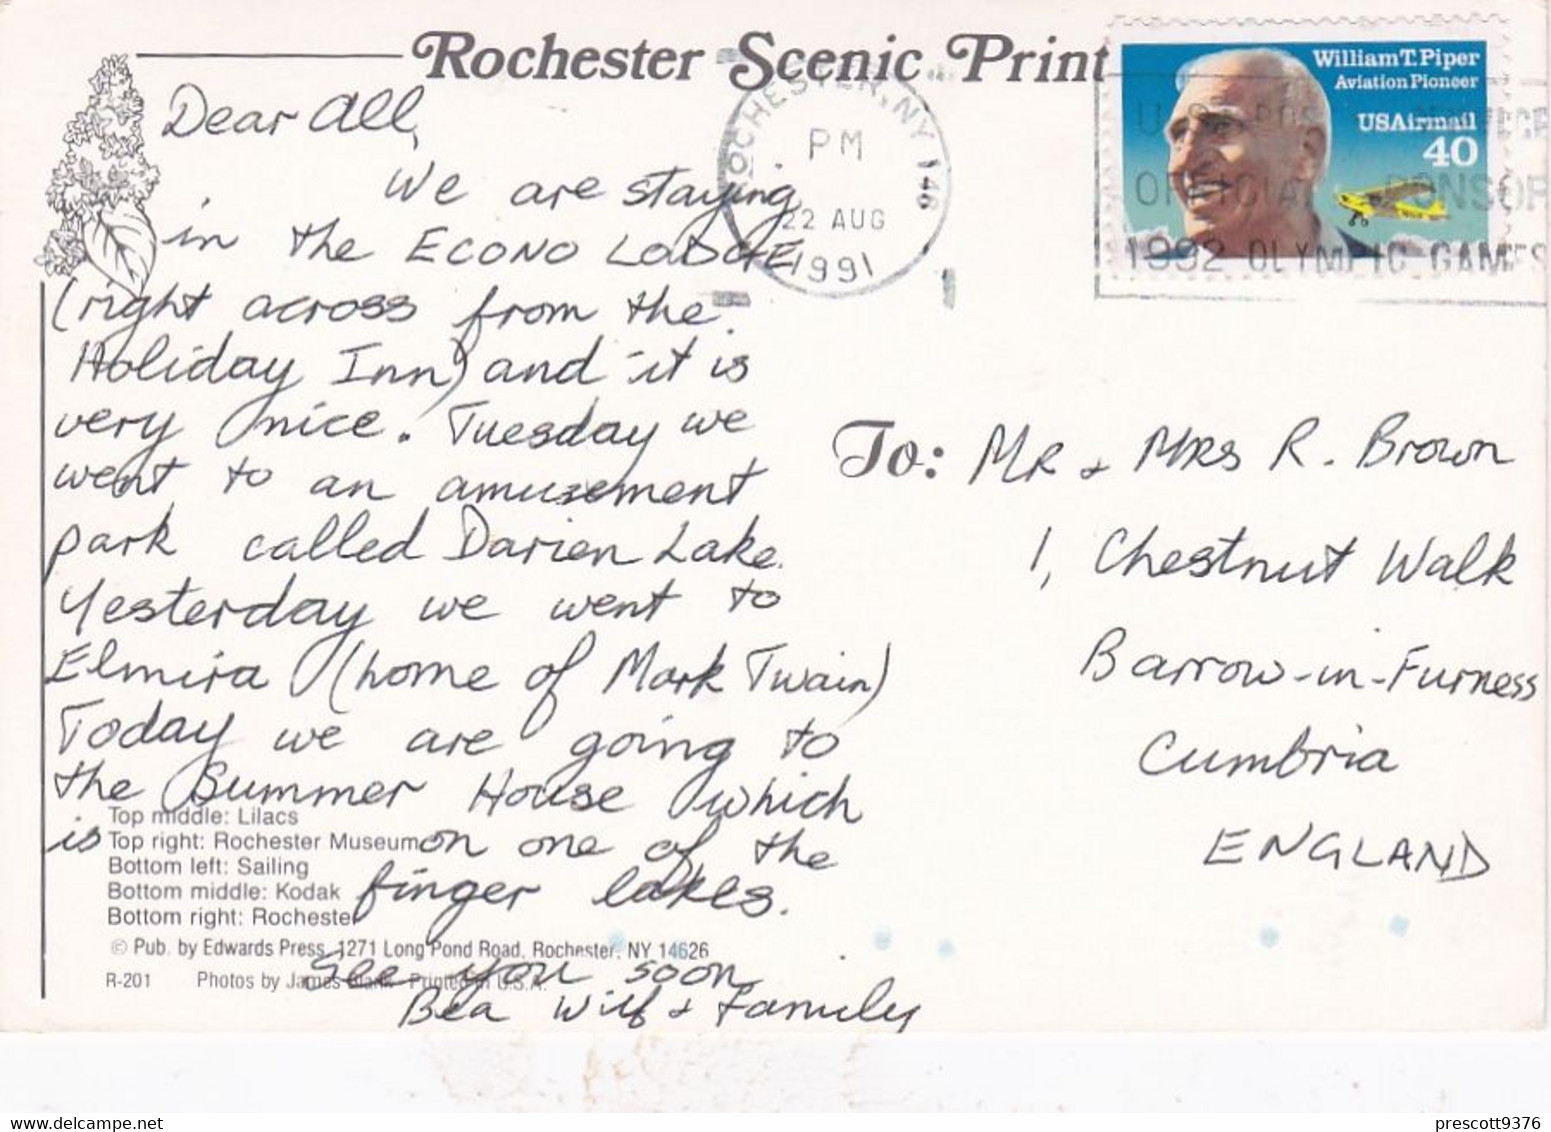 Rochester Scenic Print
William T. Piper
Aviation Pioneer
USAirmail
40
ROCHESTER, NY 146
PM
22 AUG
1991
OFFICIAL SPONSOR
1992 OLYMPIC GAMES
Dear All,
We are staying
in the ECONO LODGE
(right across from the
Holiday Inn) and it is
very nice. Tuesday we
went to an amusement
park called Darien Lake.
Yesterday we went to
Elmira (home of Mark Twain)
Today we are going to
the Summer House which
is on one of the
finger lakes.
See you soon
Bea Wilf & Family
To: MR & MRS R. Brown
1, Chestnut Walk
Barrow-in-Furness
Cumbria
ENGLAND
Top middle: Lilacs
Top right: Rochester Museum
Bottom left: Sailing
Bottom middle: Kodak
Bottom right: Rochester
© Pub. by Edwards Press, 1271 Long Pond Road, Rochester, NY 14626
R-201 Photos by James Blank Printed in U.S.A.
www.delcampe.net
prescott9376